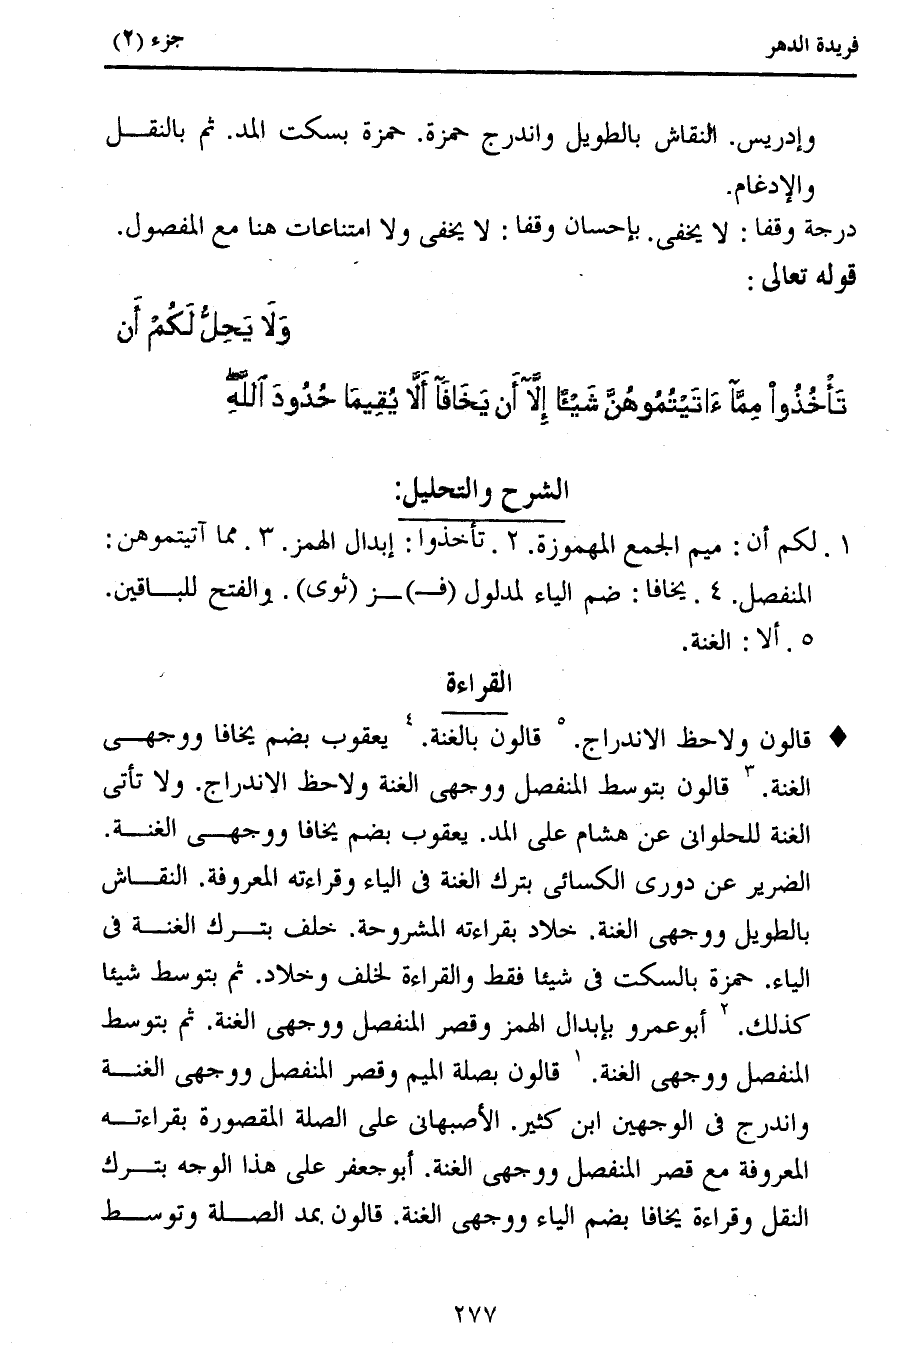 فريدة الدهر
جزء (٢)
وإدريس. النقاش بالطويل واندرج حمزة. حمزة بسكت المد. ثم بالنقل
والإدغام.
درجة وقفا : لا يخفى. بإحسان وقفا : لا يخفى ولا امتناعات هنا مع المفصول.
قوله تعالى :
وَلَا يَحِلُّ لَكُمْ أَن
تَأْخُذُوا۟ مِمَّآ ءَاتَيْتُمُوهُنَّ شَيْـًٔا إِلَّآ أَن يَخَافَآ أَلَّا يُقِيمَا حُدُودَ ٱللَّهِ ۖ
الشرح والتحليل:
١ . لكم أن : ميم الجمع المهموزة. ٢ . تأخذوا : إبدال الهمز. ٣ . مما آتيتموهن :
المنفصل. ٤ . يخافا : ضم الياء لمدلول (فـ)ـز (ثوى). والفتح للباقين.
٥ . ألا : الغنة.
القراءة
♦ قالون ولاحظ الاندراج. ٥ قالون بالغنة. ٤ يعقوب بضم يخافا ووجهى
الغنة. ٣ قالون بتوسط المنفصل ووجهى الغنة ولاحظ الاندراج. ولا تأتى
الغنة للحلوانى عن هشام على المد. يعقوب بضم يخافا ووجهى الغنة.
الضرير عن دورى الكسائى بترك الغنة فى الياء وقراءته المعروفة. النقاش
بالطويل ووجهى الغنة. خلاد بقراءته المشروحة. خلف بترك الغنة فى
الياء. حمزة بالسكت فى شيئا فقط والقراءة لخلف وخلاد. ثم بتوسط شيئا
كذلك. ٢ أبوعمرو بإبدال الهمز وقصر المنفصل ووجهى الغنة. ثم بتوسط
المنفصل ووجهى الغنة. ١ قالون بصلة الميم وقصر المنفصل ووجهى الغنة
واندرج فى الوجهين ابن كثير. الأصبهانى على الصلة المقصورة بقراءته
المعروفة مع قصر المنفصل ووجهى الغنة. أبوجعفر على هذا الوجه بترك
النقل وقراءة يخافا بضم الياء ووجهى الغنة. قالون بمد الصلة وتوسط
٢٧٧